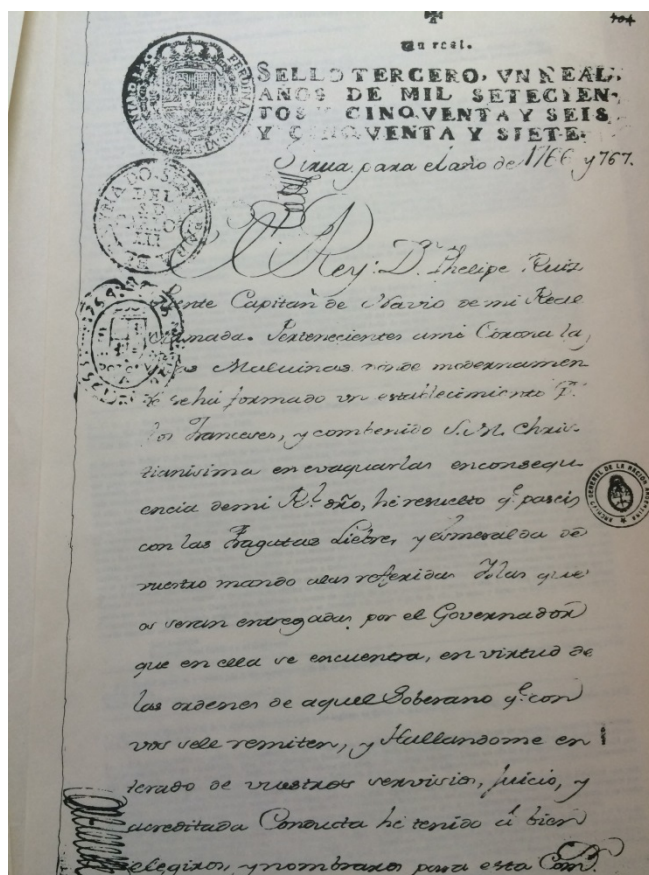 704
Un real.
SELLO TERCERO, VN REAL,
AÑOS DE MIL SETECIEN-
TOS Y CINQVENTA Y SEIS
Y CINQVENTA Y SIETE.
Sirva para el año de 1766 y 767.
El Rey: D. Phelipe Ruiz
ente Capitan de Navio de mi Real
Armada. Pertenecientes a mi Corona la
as Maluinas donde modernamen
te se ha formado un establecimiento P.r
los franceses, y combenido S. M. Chris-
tianisima en evaquarlas enconsequ-
encia demi R.l dño, he resuelto q.e paseis
con las Fragatas Liebre, y Esmeralda de
vuestro mando alas referidas Yslas que
os seran entregadas por el Governador
que en ella se encuentra, en virtud de
las ordenes de aquel Soberano q.e con
vos sele remiten, y Hallandome en
terado de vuestros servisios, juicio, y
acreditada Conducta he tenido á bien
elegiros, y nombraros para esta Com.
ARCHIVO GENERAL DE LA NACION